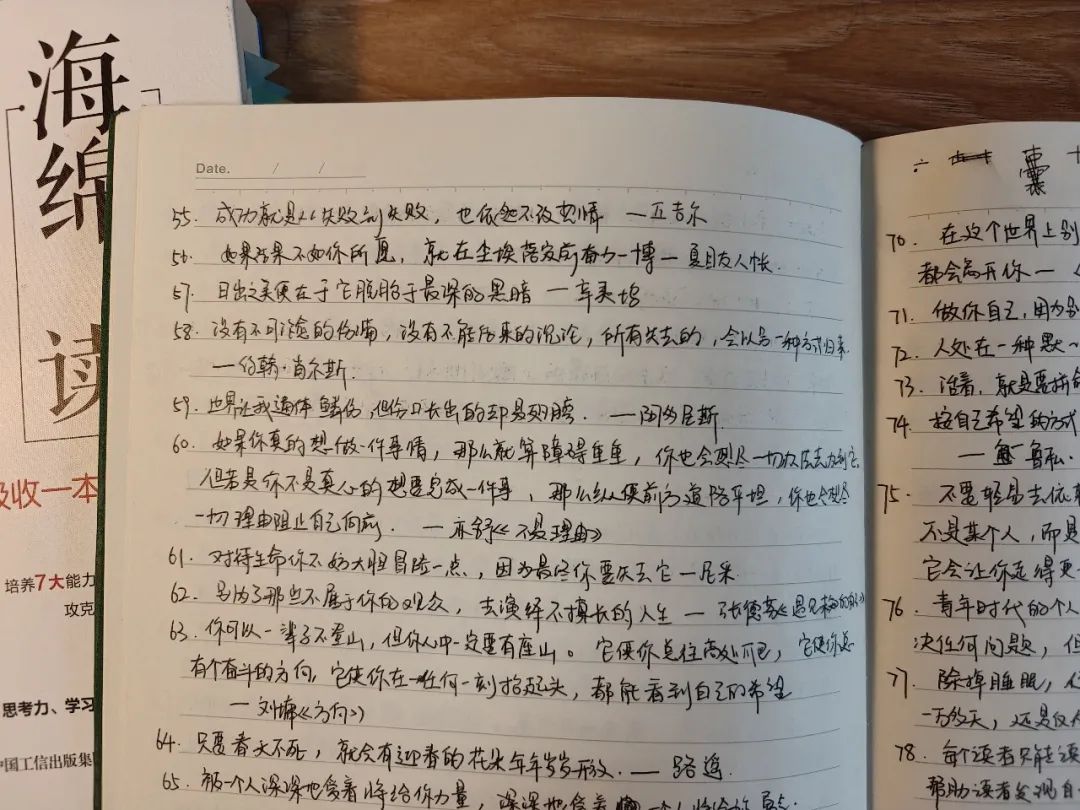 海绵
读
吸收一本
培养7大能力
攻克
思考力、学习
中国工信出版集
Date. / /
55. 成功就是从失败到失败，也依然不改热情 —丘吉尔
56. 如果结果不如你所愿，就在尘埃落定前奋力一博 — 夏目友人帐.
57. 日出之美便在于它脱胎于最深的黑暗 — 辛夷坞
58. 没有不可治愈的伤痛，没有不能结束的沉沦，所有失去的，会以另一种方式归来.
—约翰·肖尔斯.
59. 世界让我遍体鳞伤，但伤口长出的却是翅膀. —阿多尼斯.
60. 如果你真的想做一件事情，那么就算障碍重重，你也会想尽一切办法去办到它.
但若是你不是真心的想要完成一件事，那么纵使前方道路平坦，你也会想尽
一切理由阻止自己向前. — 亦舒《不是理由》
61. 对待生命你不妨大胆冒险一点，因为最终你要失去它 — 尼采.
62. 别为了那些不属于你的观众，去演绎不擅长的人生 — 张德芬《遇见
63. 你可以一辈子不登山，但你心中一定要有座山。它使你总往高处爬，它使你总
有个奋斗的方向，它使你在任何一刻抬起头，都能看到自己的希望
— 刘墉《方向》
64. 只要春天不死，就会有迎春的花朵年年岁岁开放. — 路遥.
65. 被一个人深深地爱着将给你力量，深深地爱着 一个人将给你勇气.
囊
70. 在这个世界上别
都会离开你 —
71. 做你自己，因为别
72. 人处在一种默
73. 活着，就是要拼命
74. 按自己希望的方式
— 鲁私.
75. 不要轻易去依赖
不是某个人，而是
它会让你走得更
76. 青年时代的个人
决任何问题，但
77. 除掉睡眠，人
一万多天，还是仅仅
78. 每个读者只能读
帮助读者发现自